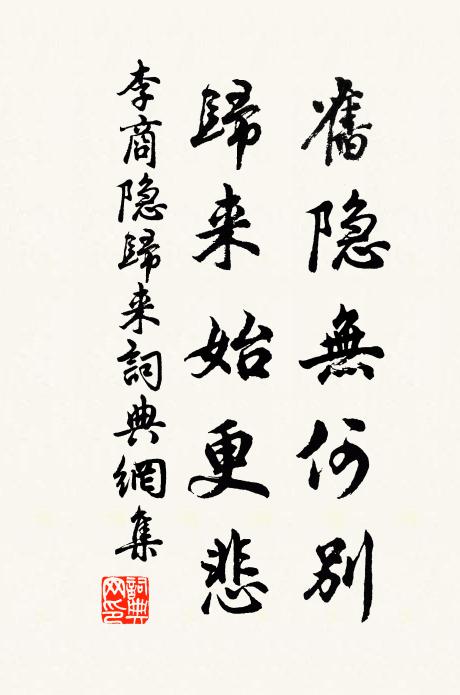 舊隐無何别
歸来始更悲
李商隐歸来詞典網集
詞典网印